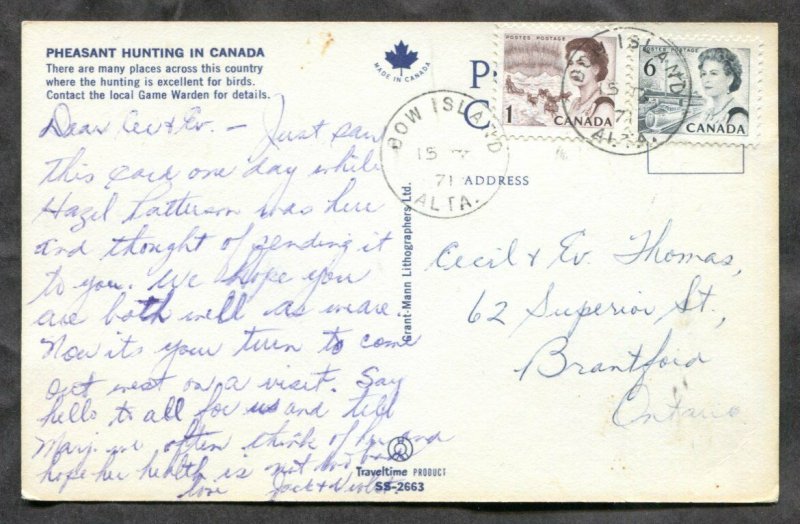 PHEASANT HUNTING IN CANADA
There are many places across this country
where the hunting is excellent for birds.
Contact the local Game Warden for details.
MADE IN CANADA
POSTES POSTAGE
1
CANADA
POSTES POSTAGE
6
CANADA
BOW ISLAND
15
71
ALTA.
ISLAND
15
71
ALTA.
Dear Cec & Ev. — Just saw
this card one day while
Hazel Patterson was here
and thought of sending it
to you. We hope you
are both well as we are
Now its your turn to come
out west on a visit. Say
hello to all for us and tell
Marj. we often think of her and
hope her health is not too bad
love Jack & Violet.
ADDRESS
Cecil & Ev. Thomas,
62 Superior St,
Brantford
Ontario
Grant-Mann Lithographers Ltd.
Traveltime PRODUCT
SS-2663